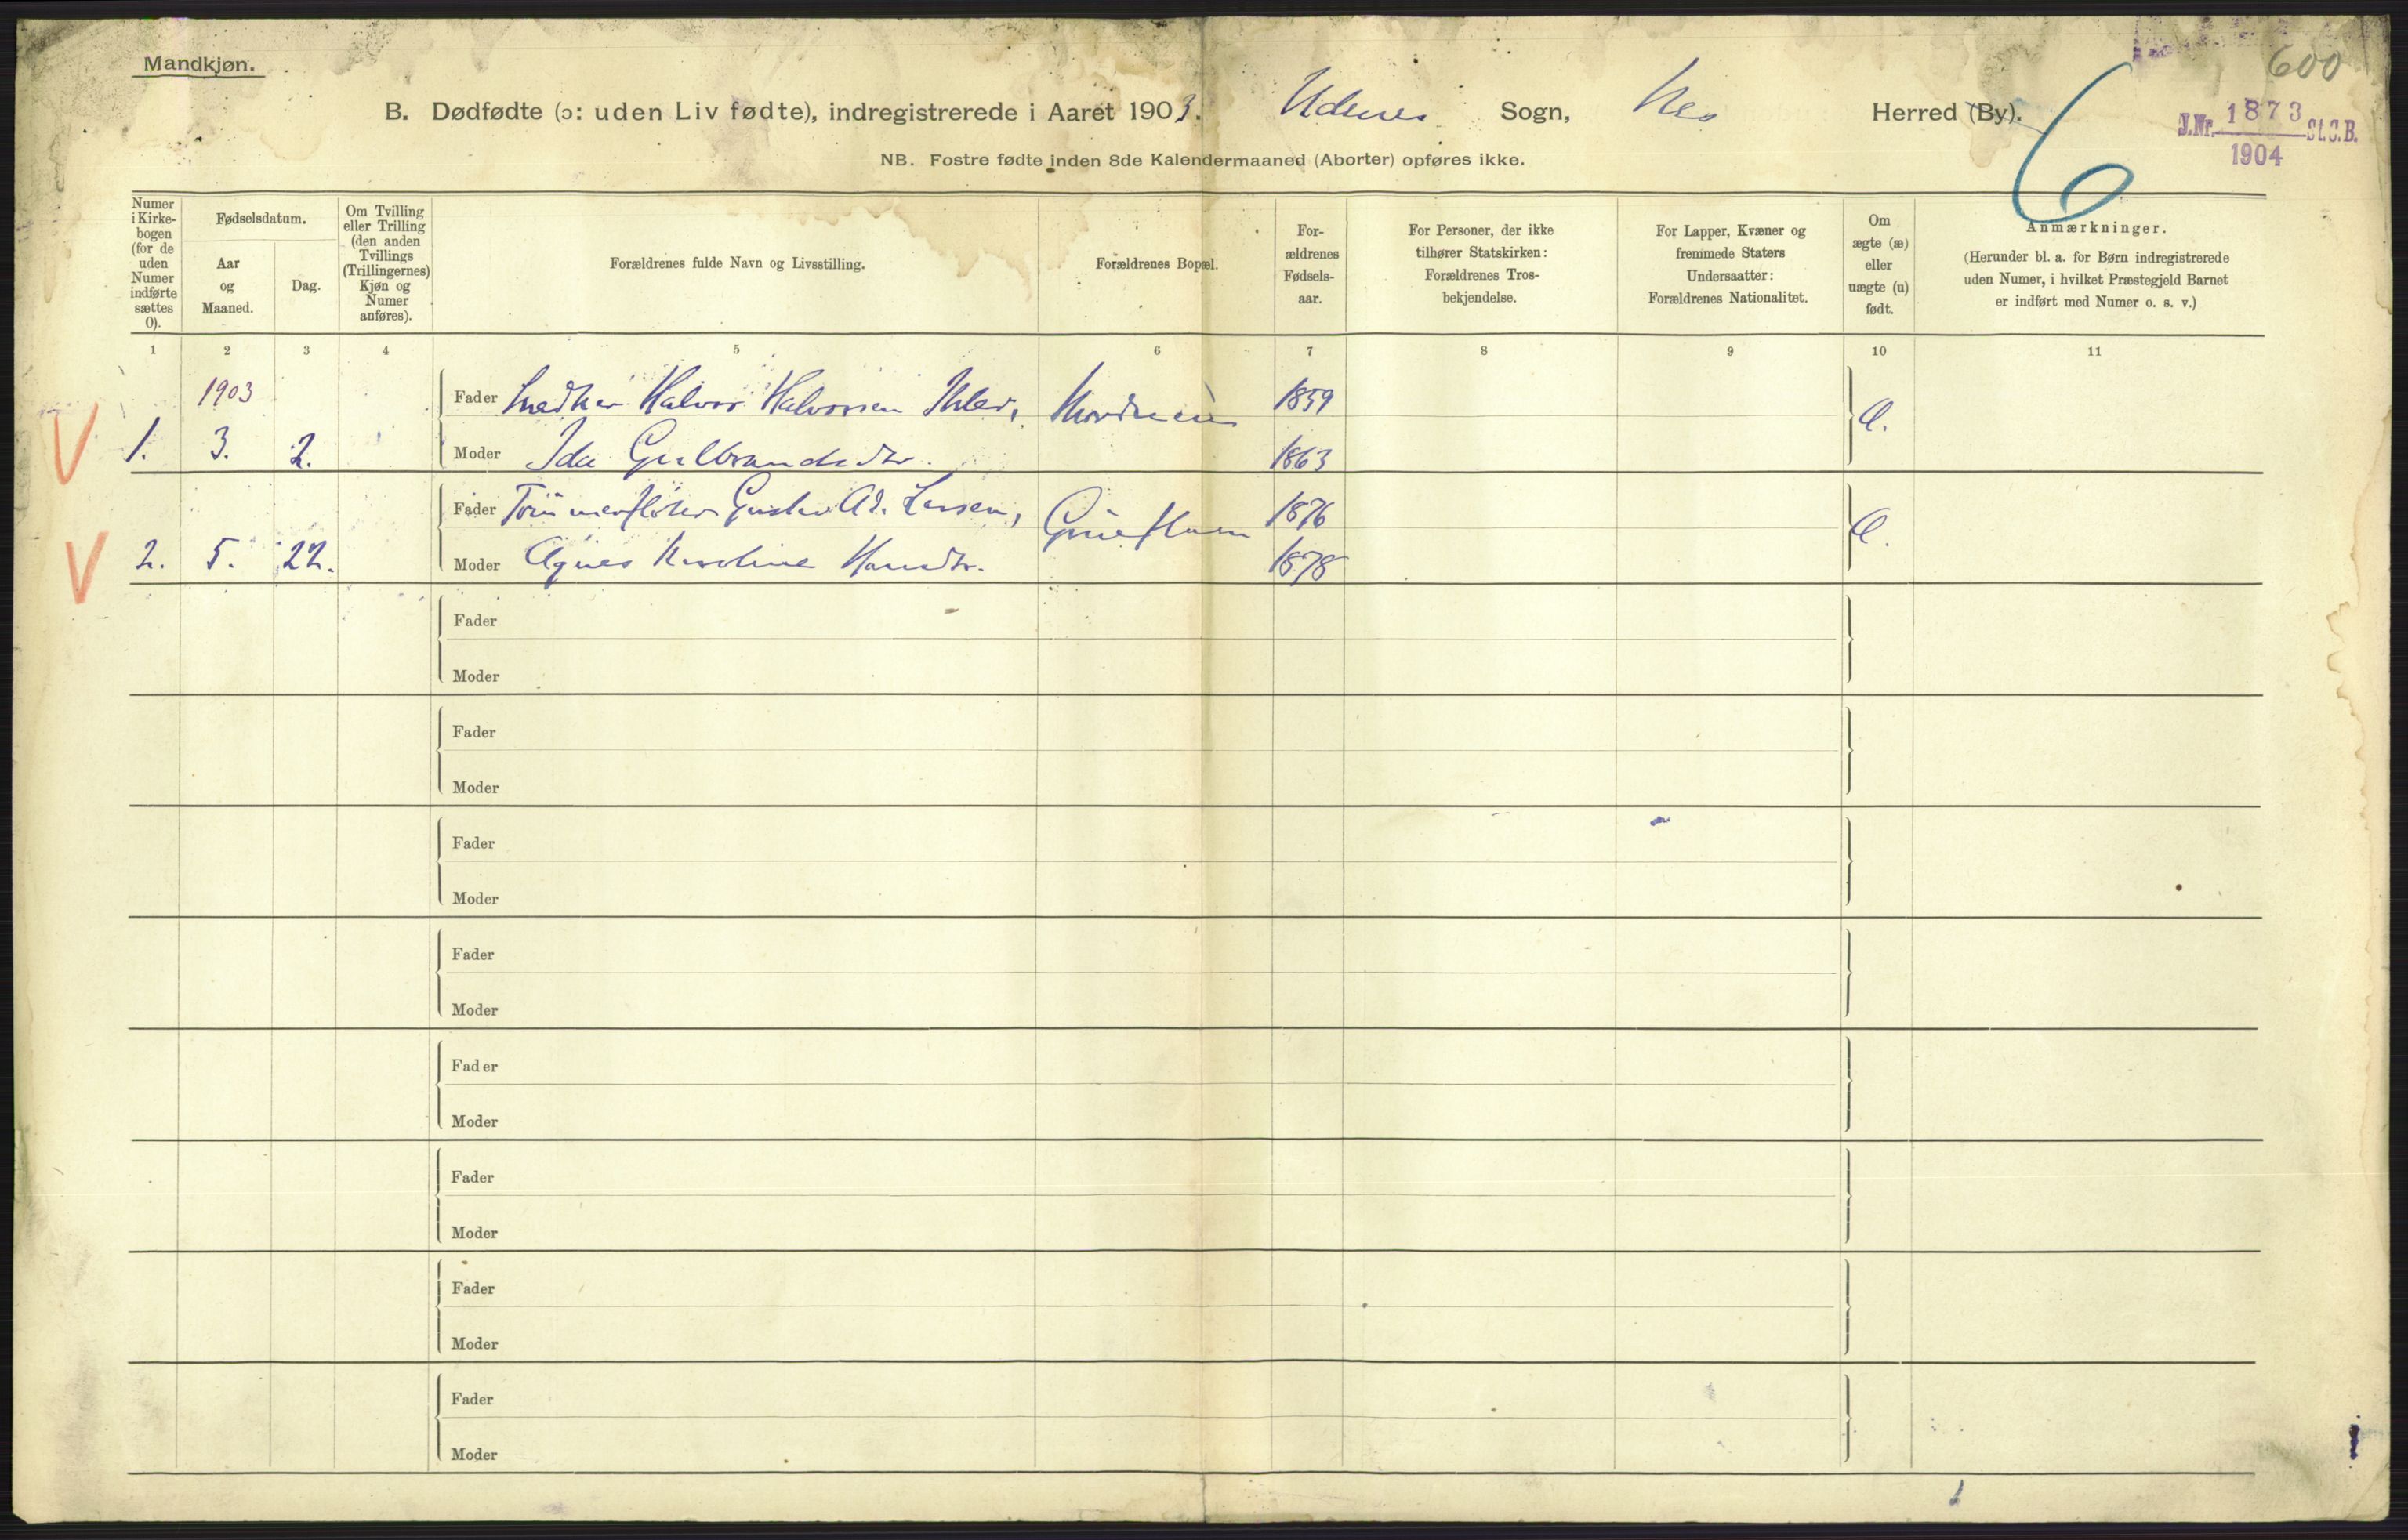 Mandkjøn.
600
B. Dødfødte (ɔ: uden Liv fødte), indregistrerede i Aaret 1903. Udenes Sogn, Nes Herred (By).
6
J.Nr. 1873 St.C.B.
1904
NB. Fostre fødte inden 8de Kalendermaaned (Aborter) opføres ikke.
Numer i Kirkebogen (for de uden Numer indførte sættes 0).
Fødselsdatum.
Aar og Maaned.
Dag.
Om Tvilling eller Trilling (den anden Tvillings (Trillingernes) Kjøn og Numer anføres).
Forældrenes fulde Navn og Livsstilling.
Forældrenes Bopæl.
For-ældrenes Fødsels-aar.
For Personer, der ikke tilhører Statskirken: Forældrenes Tros-bekjendelse.
For Lapper, Kvæner og fremmede Staters Undersaatter: Forældrenes Nationalitet.
Om ægte (æ) eller uægte (u) født.
Anmærkninger.
(Herunder bl. a. for Børn indregistrerede uden Numer, i hvilket Præstegjeld Barnet er indført med Numer o. s. v.)
1 2 3 4 5 6 7 8 9 10 11
1903 Fader Snedker Halvor Halvorsen 1859
V 1. 3. 2. Moder Ida Gulbrandsdtr. 1863
Fader Tømmerfløder Gustav Ad. Larsen, 1876
V 2. 5. 22. Moder Agnes Karoline Hansdtr. 1878
Fader
Moder
Fader
Moder
Fader
Moder
Fader
Moder
Fader
Moder
Fader
Moder
Fader
Moder
Fader
Moder